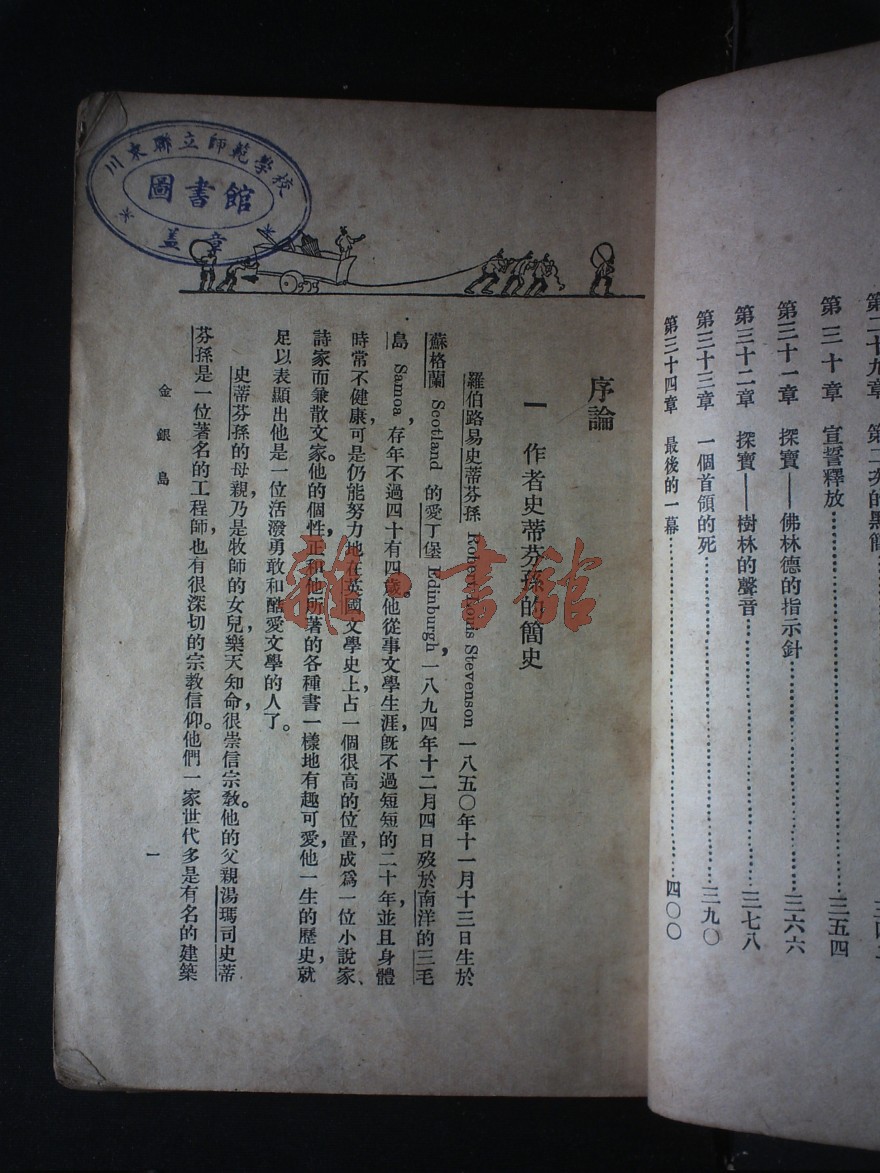 第三十章　宣誓釋放……三五四
第三十一章　探寶——佛林德的指示針……三六六
第三十二章　探寶——樹林的聲音……三七八
第三十三章　一個首領的死……三九〇
第三十四章　最後的一幕……四〇〇
川東聯立師範學校
圖書館
蓋章
序論
一　作者史蒂芬孫的簡史
羅伯路易史蒂芬孫 Robert Louis Stevenson 一八五〇年十一月十三日生於
蘇格蘭 Scotland 的愛丁堡 Edinburgh，一八九四年十二月四日歿於南洋的三毛
島 Samoa，存年不過四十有四歲。他從事文學生涯，旣不過短短的二十年，並且身體
時常不健康，可是仍能努力地在英國文學史上占一個很高的位置，成爲一位小說家、
詩家而兼散文家。他的個性，正和他所著的各種書一樣地有趣可愛，他一生的歷史，就
足以表顯出他是一位活潑勇敢和酷愛文學的人了。
史蒂芬孫的母親，乃是牧師的女兒，樂天知命，很崇信宗敎。他的父親湯瑪司史蒂
芬孫是一位著名的工程師，也有很深切的宗教信仰。他們一家世代多是有名的建築
金銀島
一
雜·書館